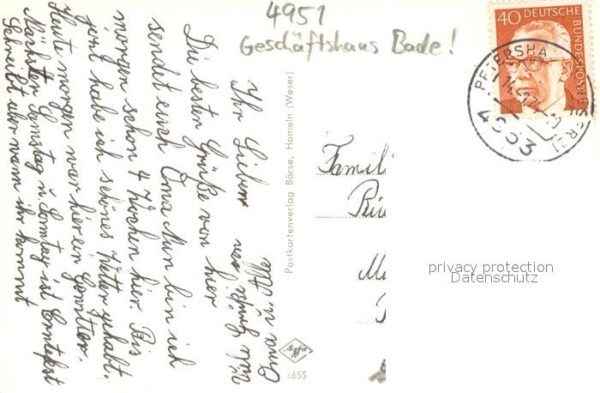 4951
Geschäftshaus Bade!
40 DEUTSCHE
BUNDESPOST
PETERSHA
4953
Ihr Lieben
Die besten Grüße von hier
sendet euch Oma Nun bin ich
morgen schon 4 Wochen hier. Bis
jezt habe ich schönes Wetter gehabt.
Heute morgen war hier ein Gewitter.
Nächsten Samstag u. Sonntag ist Erntefest
Schreibt aber wann ihr kommt
Oma
Postkartenverlag Börse, Hameln (Weser)
Famili
privacy protection
Datenschutz